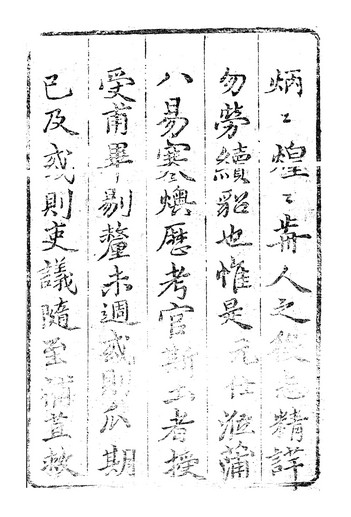 炳〻煌〻人之志精詳
勿勞續貂也惟是元仕涖蒲
八易寒燠歷考官斯土者授
受甫畢剔釐未週或則瓜期
已及或則吏議隨至補苴救